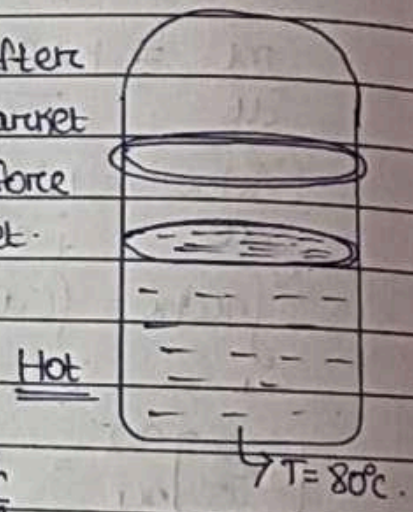 fter
arket
force
et.
Hot
T= 80°C.